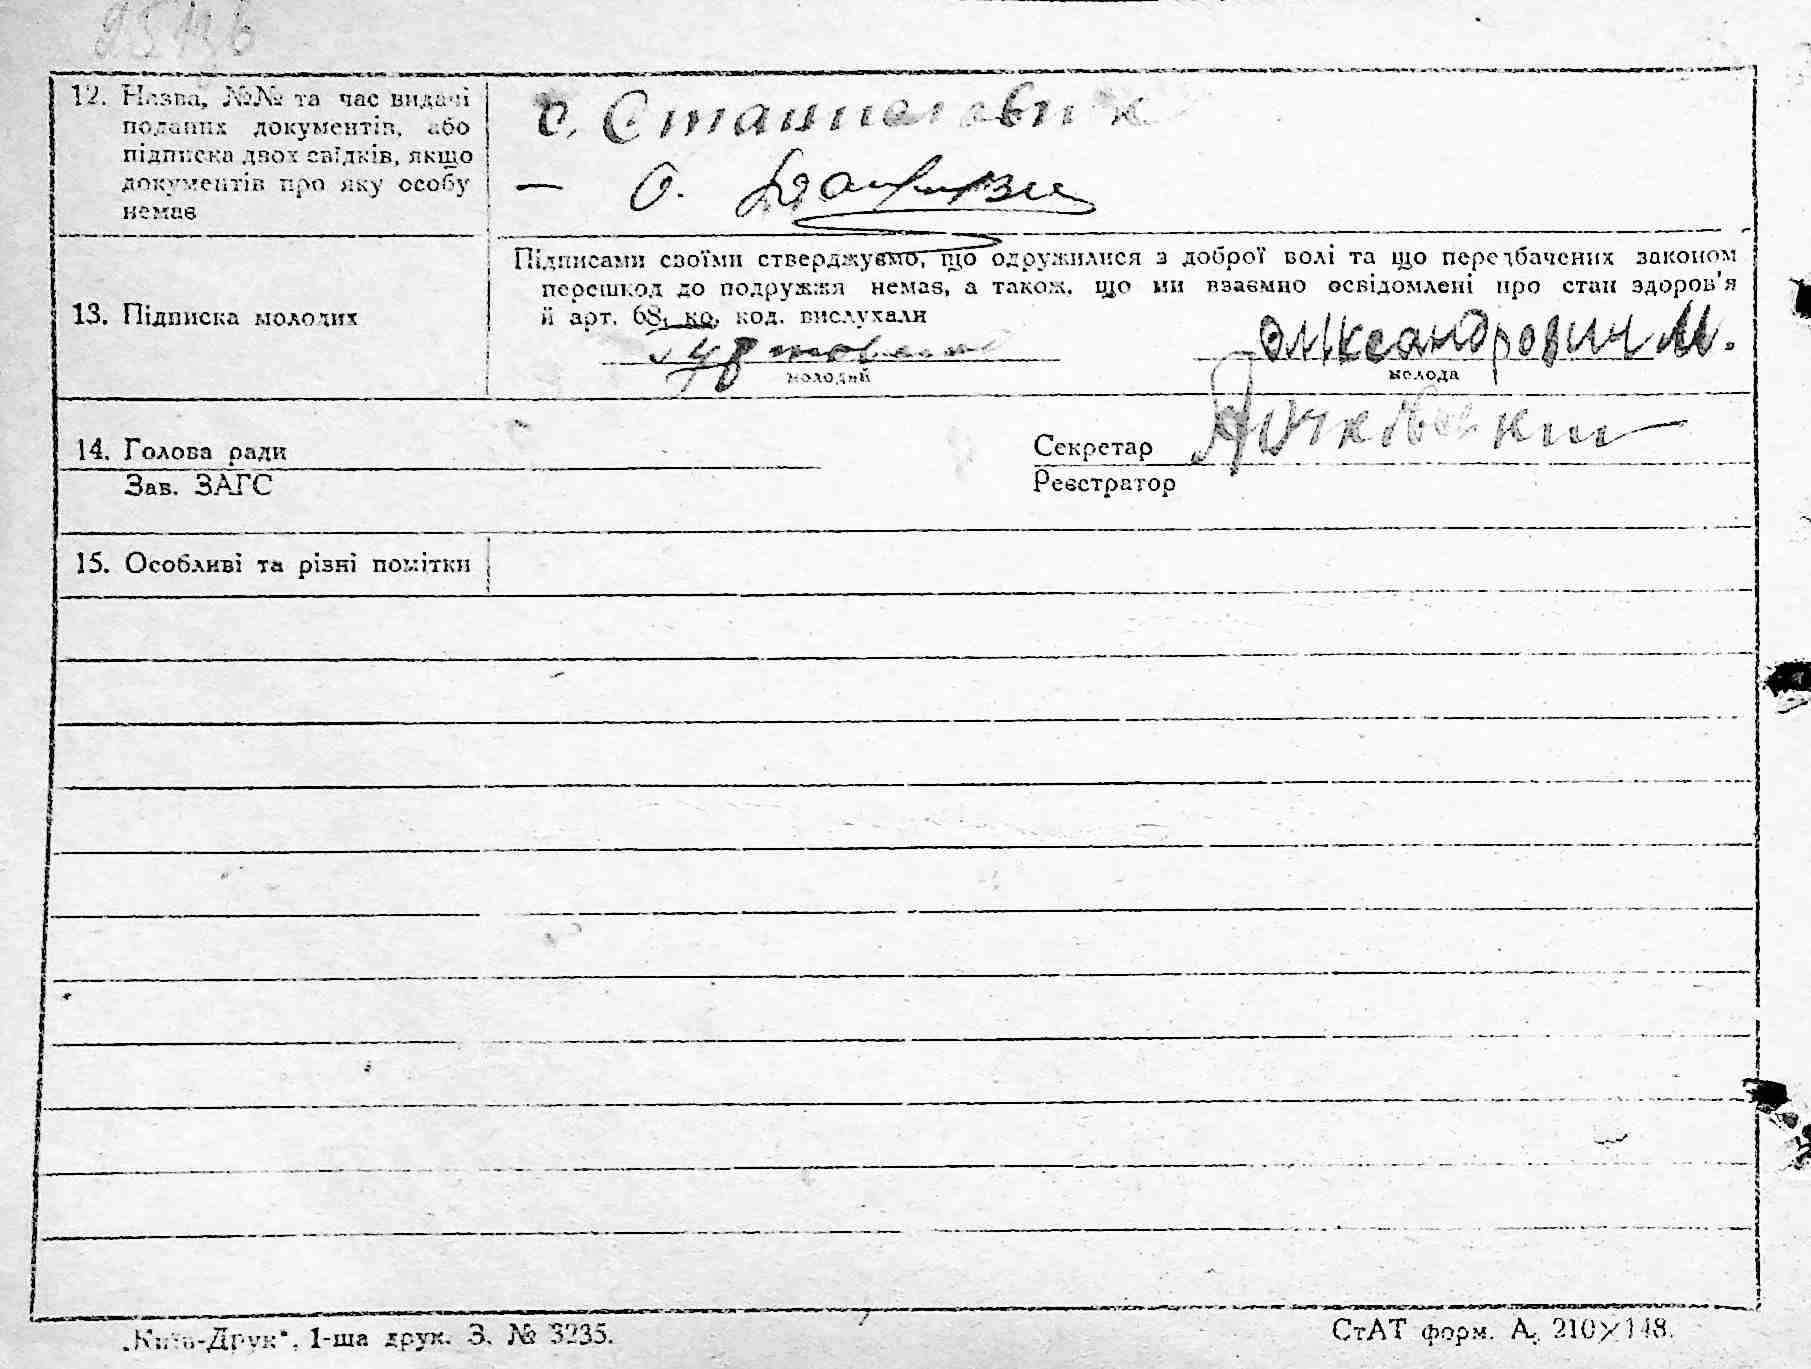 12. Назва, №№ та час видачі
поданих документів, або
підписка двох свідків, якщо
документів про яку особу
немає
О.
— О.
13. Підписка молодих
Підписами своїми стверджуємо, що одружилися з доброї волі та що передбачених законом
перешкод до подружжя немає, а також, що ми взаємно освідомлені про стан здоров'я
й арт. 68, ко, код. вислухали
Олександрович М.
молодий
молода
14. Голова ради
Секретар
Зав. ЗАГС
Реєстратор
15. Особливі та різні помітки
„Київ-Друк“, 1-ша друк. З. № 3235.
СтАТ форм. А, 210×148.